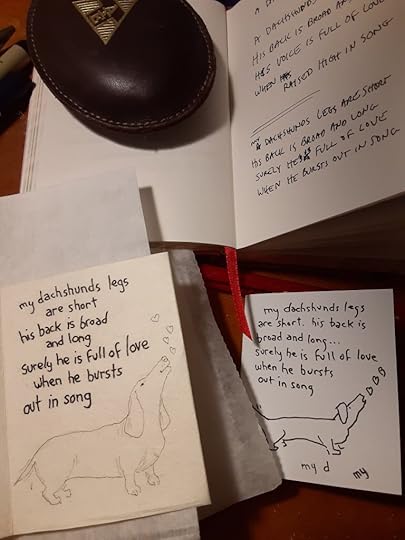 A DACHSHUNDS
HIS BACK IS BROAD AND
HIS VOICE IS FULL OF LOVE
WHEN RAISED HIGH IN SONG
DACHSHUNDS LEGS ARE SHORT
HIS BACK IS BROAD AND LONG
SURELY HE IS FULL OF LOVE
WHEN HE BURSTS OUT IN SONG
my dachshunds legs
are short
his back is broad
and long
surely he is full of love
when he bursts
out in song
my dachshunds legs
are short. his back is
broad and long...
surely he is full of love
when he bursts
out in song
my d
my